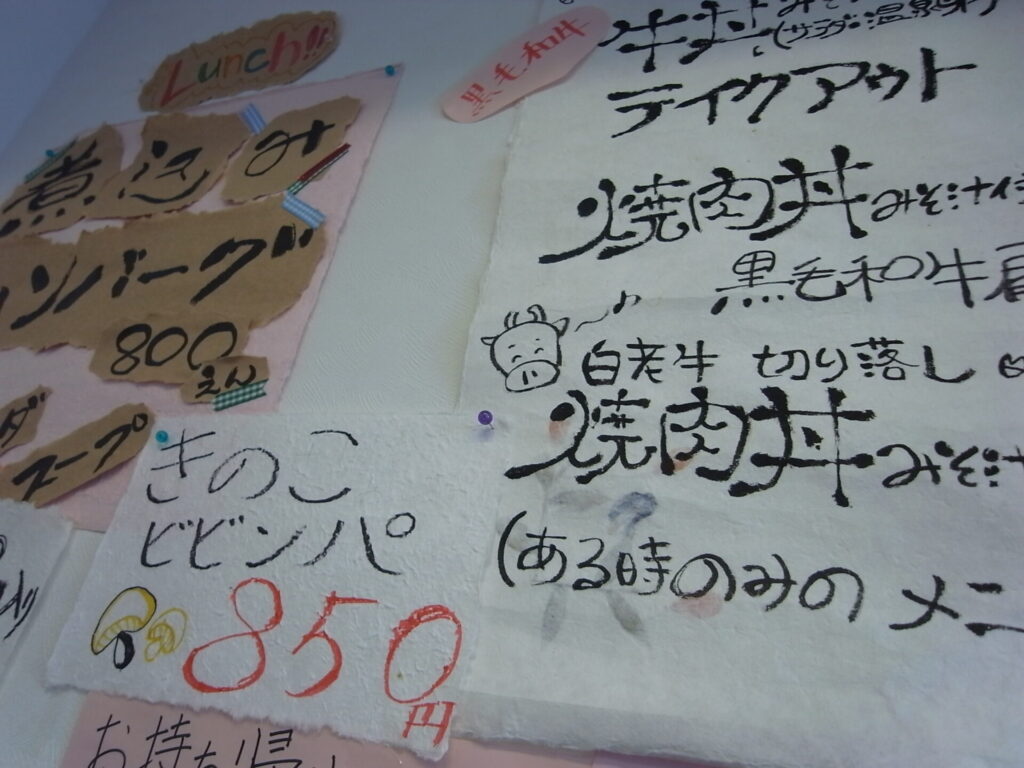 Lunch!!
煮込み
ンバーグ
800
えん
ダ
スープ
きのこ
ビビンパ
850
円
お持ち帰
黒毛和牛
牛丼
(サラダ・温泉卵)
テイクアウト
焼肉丼 みそ汁付
黒毛和牛肩
白老牛 切り落し
焼肉丼 みそ汁
(ある時のみのメニ